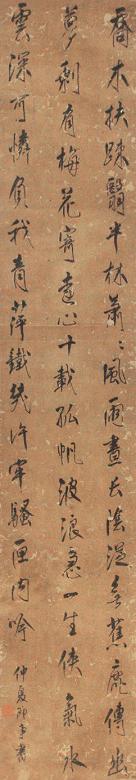 喬木扶疎翳半林蕭〻風雨晝長陰無蕉鹿傳幽
夢剩有梅花寄遠心十載孤帆波浪急一生俠氣水
雲深可憐負我青萍鐵幾許牢騷匣內吟
仲夏即事